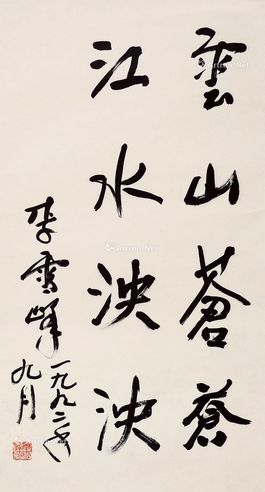 雲山蒼蒼
江水泱泱
李雪峰
一九九二年
九月